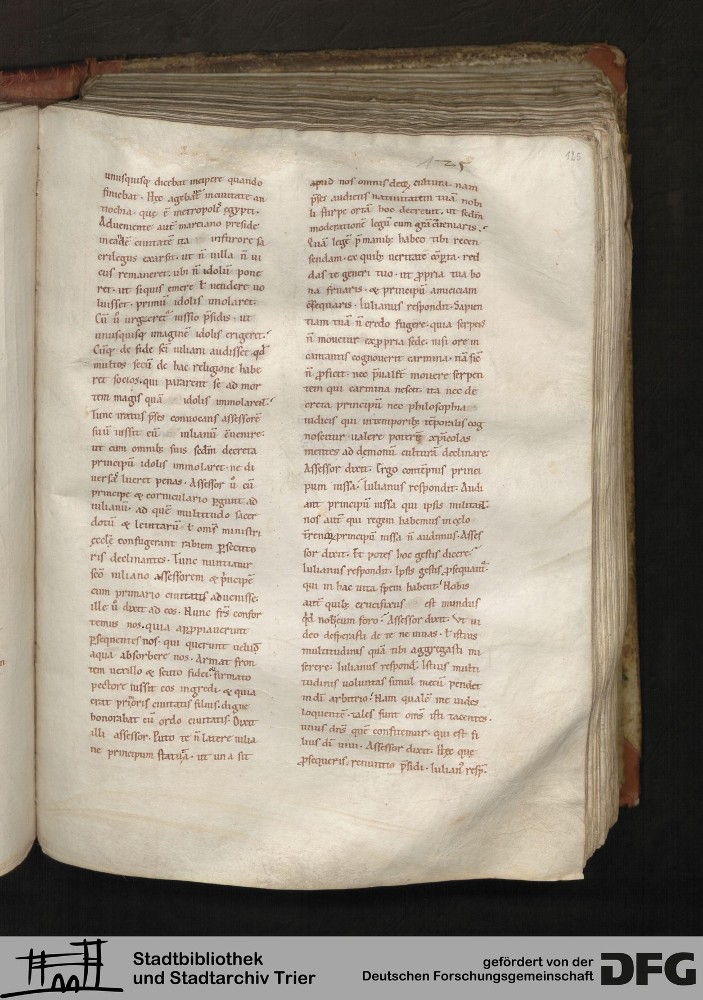 125
125
unusquisq; dicebat incipere quando
finiebat. Hęc agebant̃ in ciuitate an
tiochia. que ẽ metropolis egypti.
Adueniente aut̃ marciano preside
ciuitatẽ ita in furore sa
crilegus exarsit. ut ñ uilla ñ ui
cus remaneret. ubi ñ idolũ pone
ret. ut siquis emere ł uendere uo
luisset. primũ idolis imolaret.
Cũ ũ urgeret iussio p̃sidis. ut
unusquisq; imaginẽ idolis erigeret.
Cũq; de fide sc̃i iuliani audisset qđ
multos secũ de hac religione habe
ret socios. qui pararent se ad mor
tem magis quã idolis immolarent.
Tunc iratus p̃ses conuocans assessorẽ
suũ iussit eũ iulianũ cũuenire.
ut cum omnib; suis scđm decreta
principũ idolis immolaret. ne di
uersas lueret penas. Assessor ũ cũ
principe & corniculario ꝑgunt ad
iulianũ. ad quẽ multitudo sacer
dotũ & leuitarũ ł om̃s ministri
ęccłę confugerant rabiem ꝑsecuto
ris declinantes. Tunc nuntiatur
sc̃o iuliano assessorem & p̃ncipẽ
cum primario ciuitatis aduenisse.
ille ũ dixit ad eos. Nunc frs̃ confor
temus nos. quia appropiauerunt
ꝑsequentes nos. qui querunt uelud
aqua absorbere nos. Armat fron
tem uexillo & scuto fidei. firmato
pectore iussit eos ingredi. & quia
erat prioris ciuitatis filius. digne
honorabat eũ ordo ciuitatis. Dixit
illi assessor. Puto te ñ latere iulia
ne principum statuta. ut una sit
apud nos omnis deoꝝ cultura. nam
p̃ses audiens natiuitatem tuã nobi
li stirpe ortã hoc decreuit. ut scđm
moderationẽ legũ cum gr̃a cũuenaris.
Quã legẽ p̃ manib; habeo tibi recen
sendam. ex quib; ueritate cõꝑta. red
das te generi tuo. ut ꝓpria tua bo
na fruaris. & principũ amiciciam
cõsequaris. Iulianus respondit. Sapien
tiam tuã ñ credo fugere. quia serpens
ñ mouetur ex ꝓpria sede. nisi ore in
cantantis cognouerit carmina. nã sic̃
ñ ꝓficit. nec p̃ualet mouere serpen
tem qui carmina nescit. ita nec de
creta principũ nec philosophia
iudicis qui in temporib; tẽporalis cog
noscitur ualere poterit xp̃icolas
mentes ad demonũ culturã declinare.
Assessor dixit. Ergo contẽpnis princi
pum iussa. Iulianus respondit. Audi
ant principũ iussa qui ipsis militant.
nos aut̃ qui regem habemus in cęlo
principũ iussa ñ audimus. Asses
sor dixit. Et potes hoc gestis dicere.
Iulianus respondit. Ipsis gestis ꝓsequant̃
qui in hac uita spem habent. Nobis
aut̃ quib; crucifixus est mundus
qđ nobiscum foro. Assessor dixit. Vt ui
deo desperasti de te ne uiuas. ł istius
multitudinis quã tibi aggregasti mi
serere. Iulianus respond̃. Istius multi
tudinis uoluntas simul mecũ pendet
in dĩ arbitrio. Nam qualẽ me uides
loquentẽ. tales sunt om̃s isti tacentes.
unus dñs quẽ confitemur. qui est fi
lius dĩ uiui. Assessor dixit. Hęc que
ꝓsequeris renuntio p̃sidi. Iulianus resp̃.
Stadtbibliothek
und Stadtarchiv Trier
gefördert von der
Deutschen Forschungsgemeinschaft
DFG